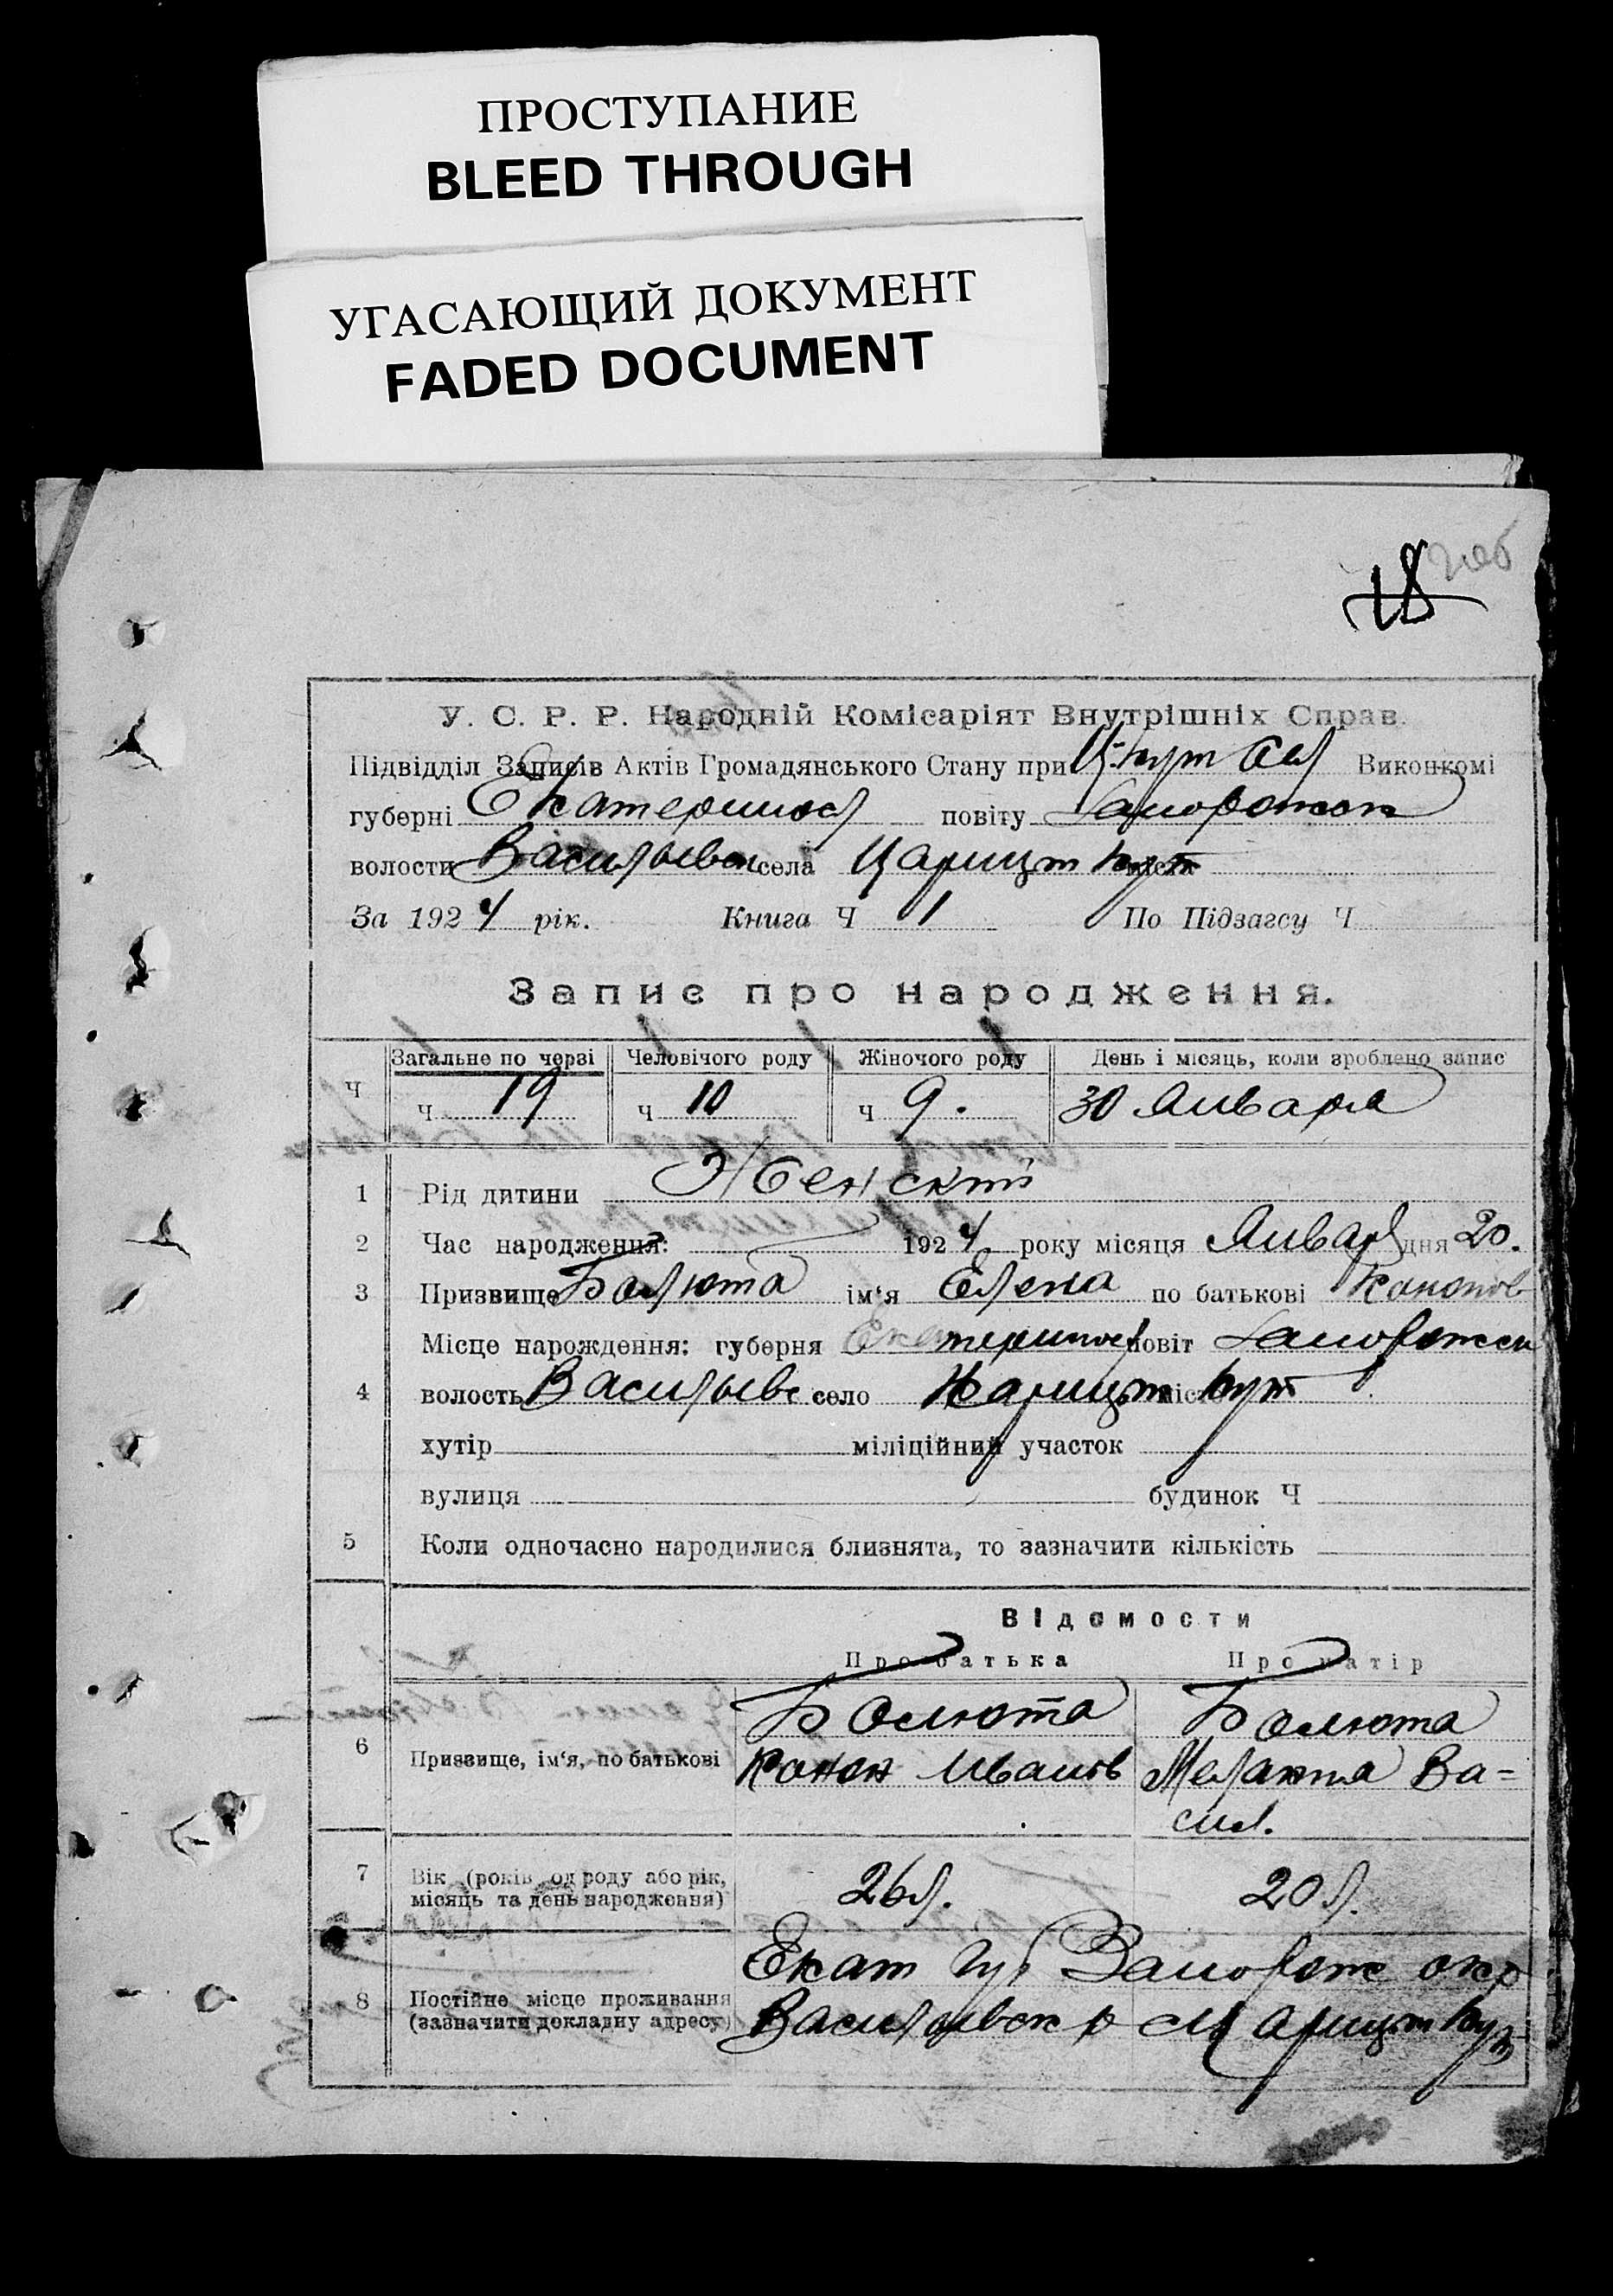 ПРОСТУПАНИЕ
BLEED THROUGH
УГАСАЮЩИЙ ДОКУМЕНТ
FADED DOCUMENT
18
У. С. Р. Р. Народній Комісаріят Внутрішніх Справ.
Підвідділ Записів Актів Громадянського Стану при Ц-Кут Сел Виконкомі
губерні Екатеринос повіту Запорожск
волости Васильевск села Царицин Кут міста
За 1924 рік. Книга Ч 1 По Підзагсу Ч
Запис про народження.
Загальне по черзі Чоловічого роду Жіночого роду День і місяць, коли зроблено запис
Ч Ч 19 Ч 10 Ч 9. 30 Января
1 Рід дитини Женский
2 Час народження: 1924 року місяця Январ дня 20.
3 Призвище Балюта ім'я Елена по батькові Кононов
Місце народження: губерня Екатеринос повіт Запорожск
4 волость Васильевс село Царицин місто Кут
хутір міліційний участок
вулиця будинок Ч
5 Коли одночасно народилися близнята, то зазначити кількість
Відомости
Про батька Про матір
Балюта Балюта
6 Призвище, ім'я, по батькові Конон Иванов Мелания Ва=
сил.
7 Вік (років од роду або рік, 26 л. 20 л.
місяць та день народження)
Екат Губ Запорож окр
8 Постійне місце проживання
(зазначити докладну адресу) Васильевск р с Царицин Кут